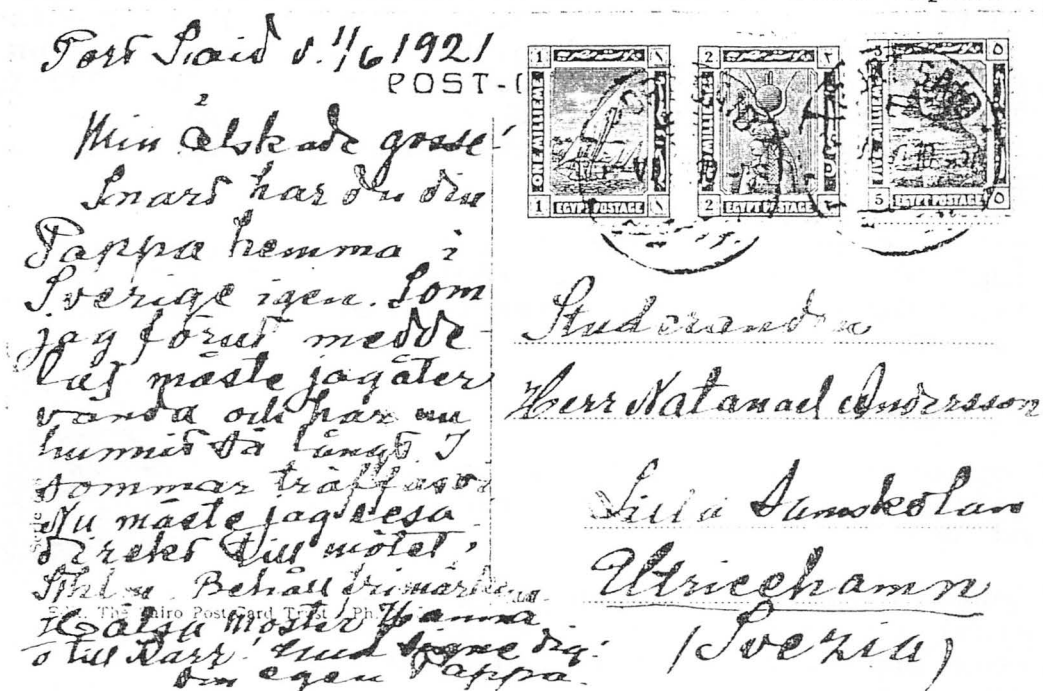 Port Said d. 11/6 1921
POST-
Min älskade gosse!
Snart har du din
Pappa hemma i
Sverige igen. Som
jag förut medde-
lat måste jag åter
vända och har nu
hunnit så långt. I
sommar träffas vi
Nu måste jag resa
direkt till mötet,
Sthlm. Behåll frimärkena
The Cairo Postcard Trust
Hälsa Moster Hanna
o till Karr! Gud signe dig!
din egen Pappa.
1 1
ONE MILLIEME
1 EGYPT POSTAGE ١
2 ٢
2 EGYPT POSTAGE ٢
5 ٥
FIVE MILLIEMES
5 EGYPT POSTAGE ٥
Studeranden
Herr Natanael Andersson
Samskolan
Ulricehamn
(Svezia)